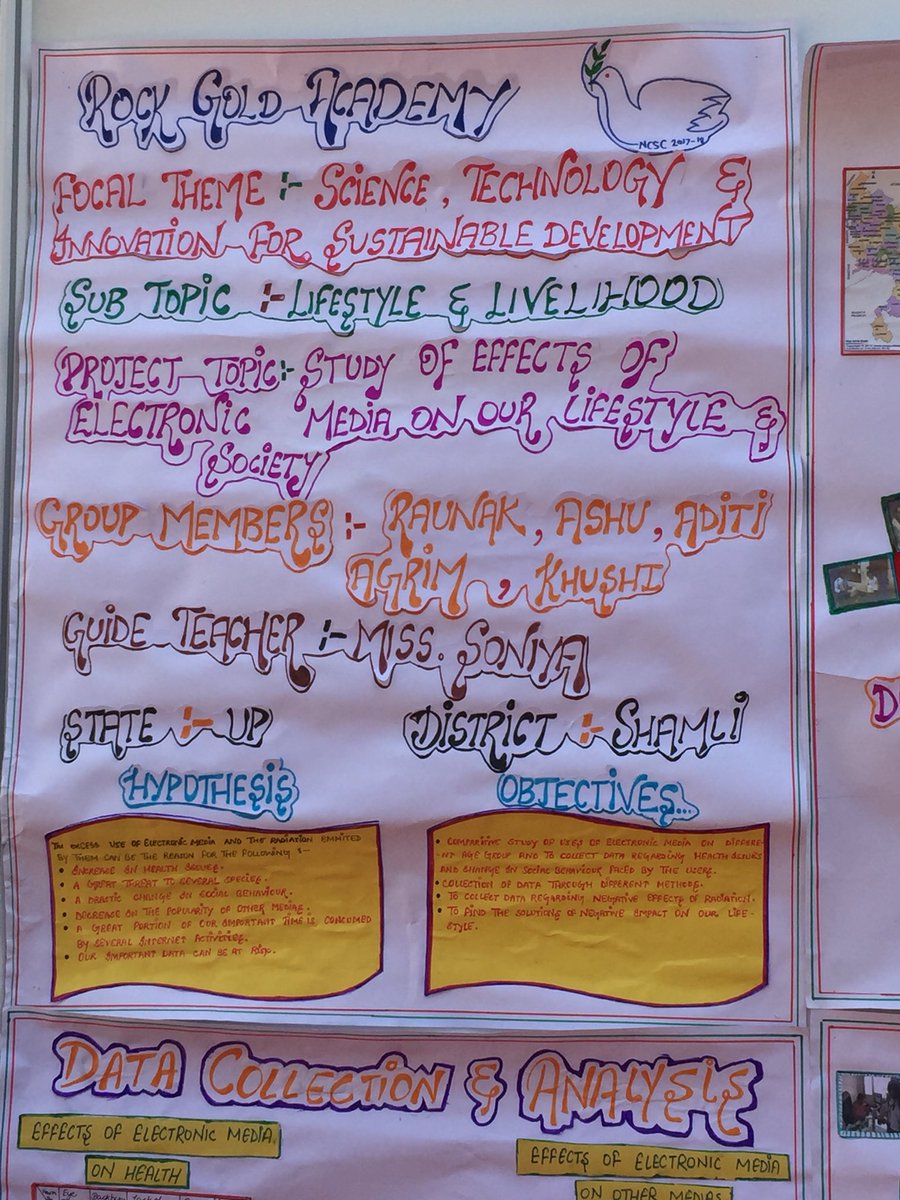 ROCK GOLD ACADEMY
NCSC 2017-18
FOCAL THEME :- SCIENCE, TECHNOLOGY &
INNOVATION FOR SUSTAINABLE DEVELOPMENT
SUB TOPIC :- LIFESTYLE & LIVELIHOOD
PROJECT TOPIC:- STUDY OF EFFECTS OF
ELECTRONIC MEDIA ON OUR LIFESTYLE &
SOCIETY
GROUP MEMBERS :- RAUNAK, ASHU, ADITI
AGRIM, KHUSHI
GUIDE TEACHER :- MISS. SONIYA
STATE :- UP
DISTRICT :- SHAMLI
HYPOTHESIS
THE EXCESS USE OF ELECTRONIC MEDIA AND THE RADIATION EMMITED
BY THEM CAN BE THE REASON FOR THE FOLLOWING :-
• INCREASE IN HEALTH ISSUES.
• A GREAT THREAT TO SEVERAL SPECIES.
• A DRACTIC CHANGE IN SOCIAL BEHAVIOUR.
• DECREASE IN THE POPULARITY OF OTHER MEDIAS.
• A GREAT PORTION OF OUR IMPORTANT TIME IS CONSUMED
BY SEVERAL INTERNET ACTIVITIES.
• OUR IMPORTANT DATA CAN BE AT RISK.
OBJECTIVES...
• COMPARITIVE STUDY OF USES OF ELECTRONIC MEDIA ON DIFFERE-
NT AGE GROUP AND TO COLLECT DATA REGARDING HEALTH ISSUES
AND CHANGE IN SOCIAL BEHAVIOUR FACED BY THE USERS.
• COLLECTION OF DATA THROUGH DIFFERENT METHODS.
• TO COLLECT DATA REGARDING NEGATIVE EFFECTS OF RADIATION.
• TO FIND THE SOLUTIONS OF NEGATIVE IMPACT ON OUR LIFE-
STYLE.
DATA COLLECTION & ANALYSIS
EFFECTS OF ELECTRONIC MEDIA
ON HEALTH
EFFECTS OF ELECTRONIC MEDIA
ON OTHER MEDIAS
Eye
D